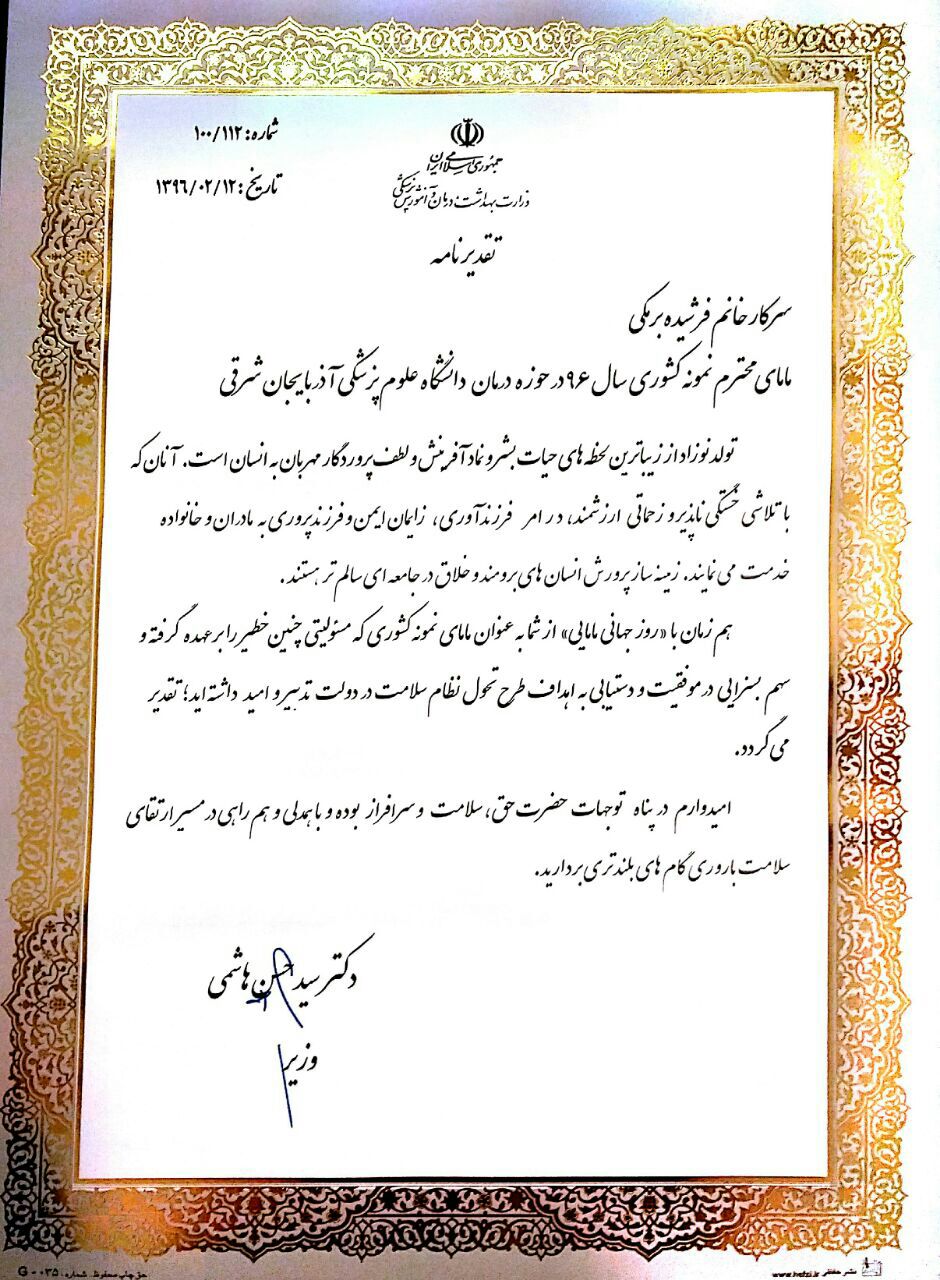 جمهوری اسلامی ایران
وزارت بهداشت، درمان و آموزش پزشکی
شماره: ۱۰۰/۱۱۲
تاریخ: ۱۳۹۶/۰۲/۱۲
تقدیرنامه
سرکار خانم فرشیده برمکی
مامای محترم نمونه کشوری سال ۹۶ در حوزه درمان دانشگاه علوم پزشکی آذربایجان شرقی
تولد نوزاد از زیباترین لحظه های حیات بشر و نماد آفرینش و لطف پروردگار مهربان به انسان است. آنان که
با تلاشی خستگی ناپذیر و زحماتی ارزشمند، در امر فرزندآوری، زایمان ایمن و فرزندپروری به مادران و خانواده
خدمت می نمایند. زمینه ساز پرورش انسان های برومند و خلاق در جامعه ای سالم تر هستند.
هم زمان با «روز جهانی مامایی» از شما به عنوان مامای نمونه کشوری که مسئولیتی چنین خطیر را بر عهده گرفته و
سهم بسزایی در موفقیت و دستیابی به اهداف طرح تحول نظام سلامت در دولت تدبیر و امید داشته اید؛ تقدیر
می گردد.
امیدوارم در پناه توجهات حضرت حق، سلامت و سرافراز بوده و با همدلی و هم راهی در مسیر ارتقای
سلامت باروری گام های بلندتری بردارید.
دکتر سید حسن هاشمی
وزیر
نشر حفظی www.hefzi.ir
حق چاپ محفوظ. شماره: G - ۰۳۵